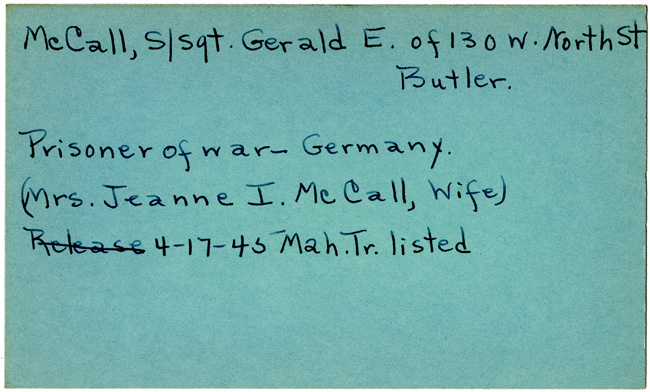 McCall, S/Sgt. Gerald E. of 130 W. North St
Butler.
Prisoner of war- Germany.
(Mrs. Jeanne I. McCall, Wife)
Release 4-17-45 Mah.Tr. listed